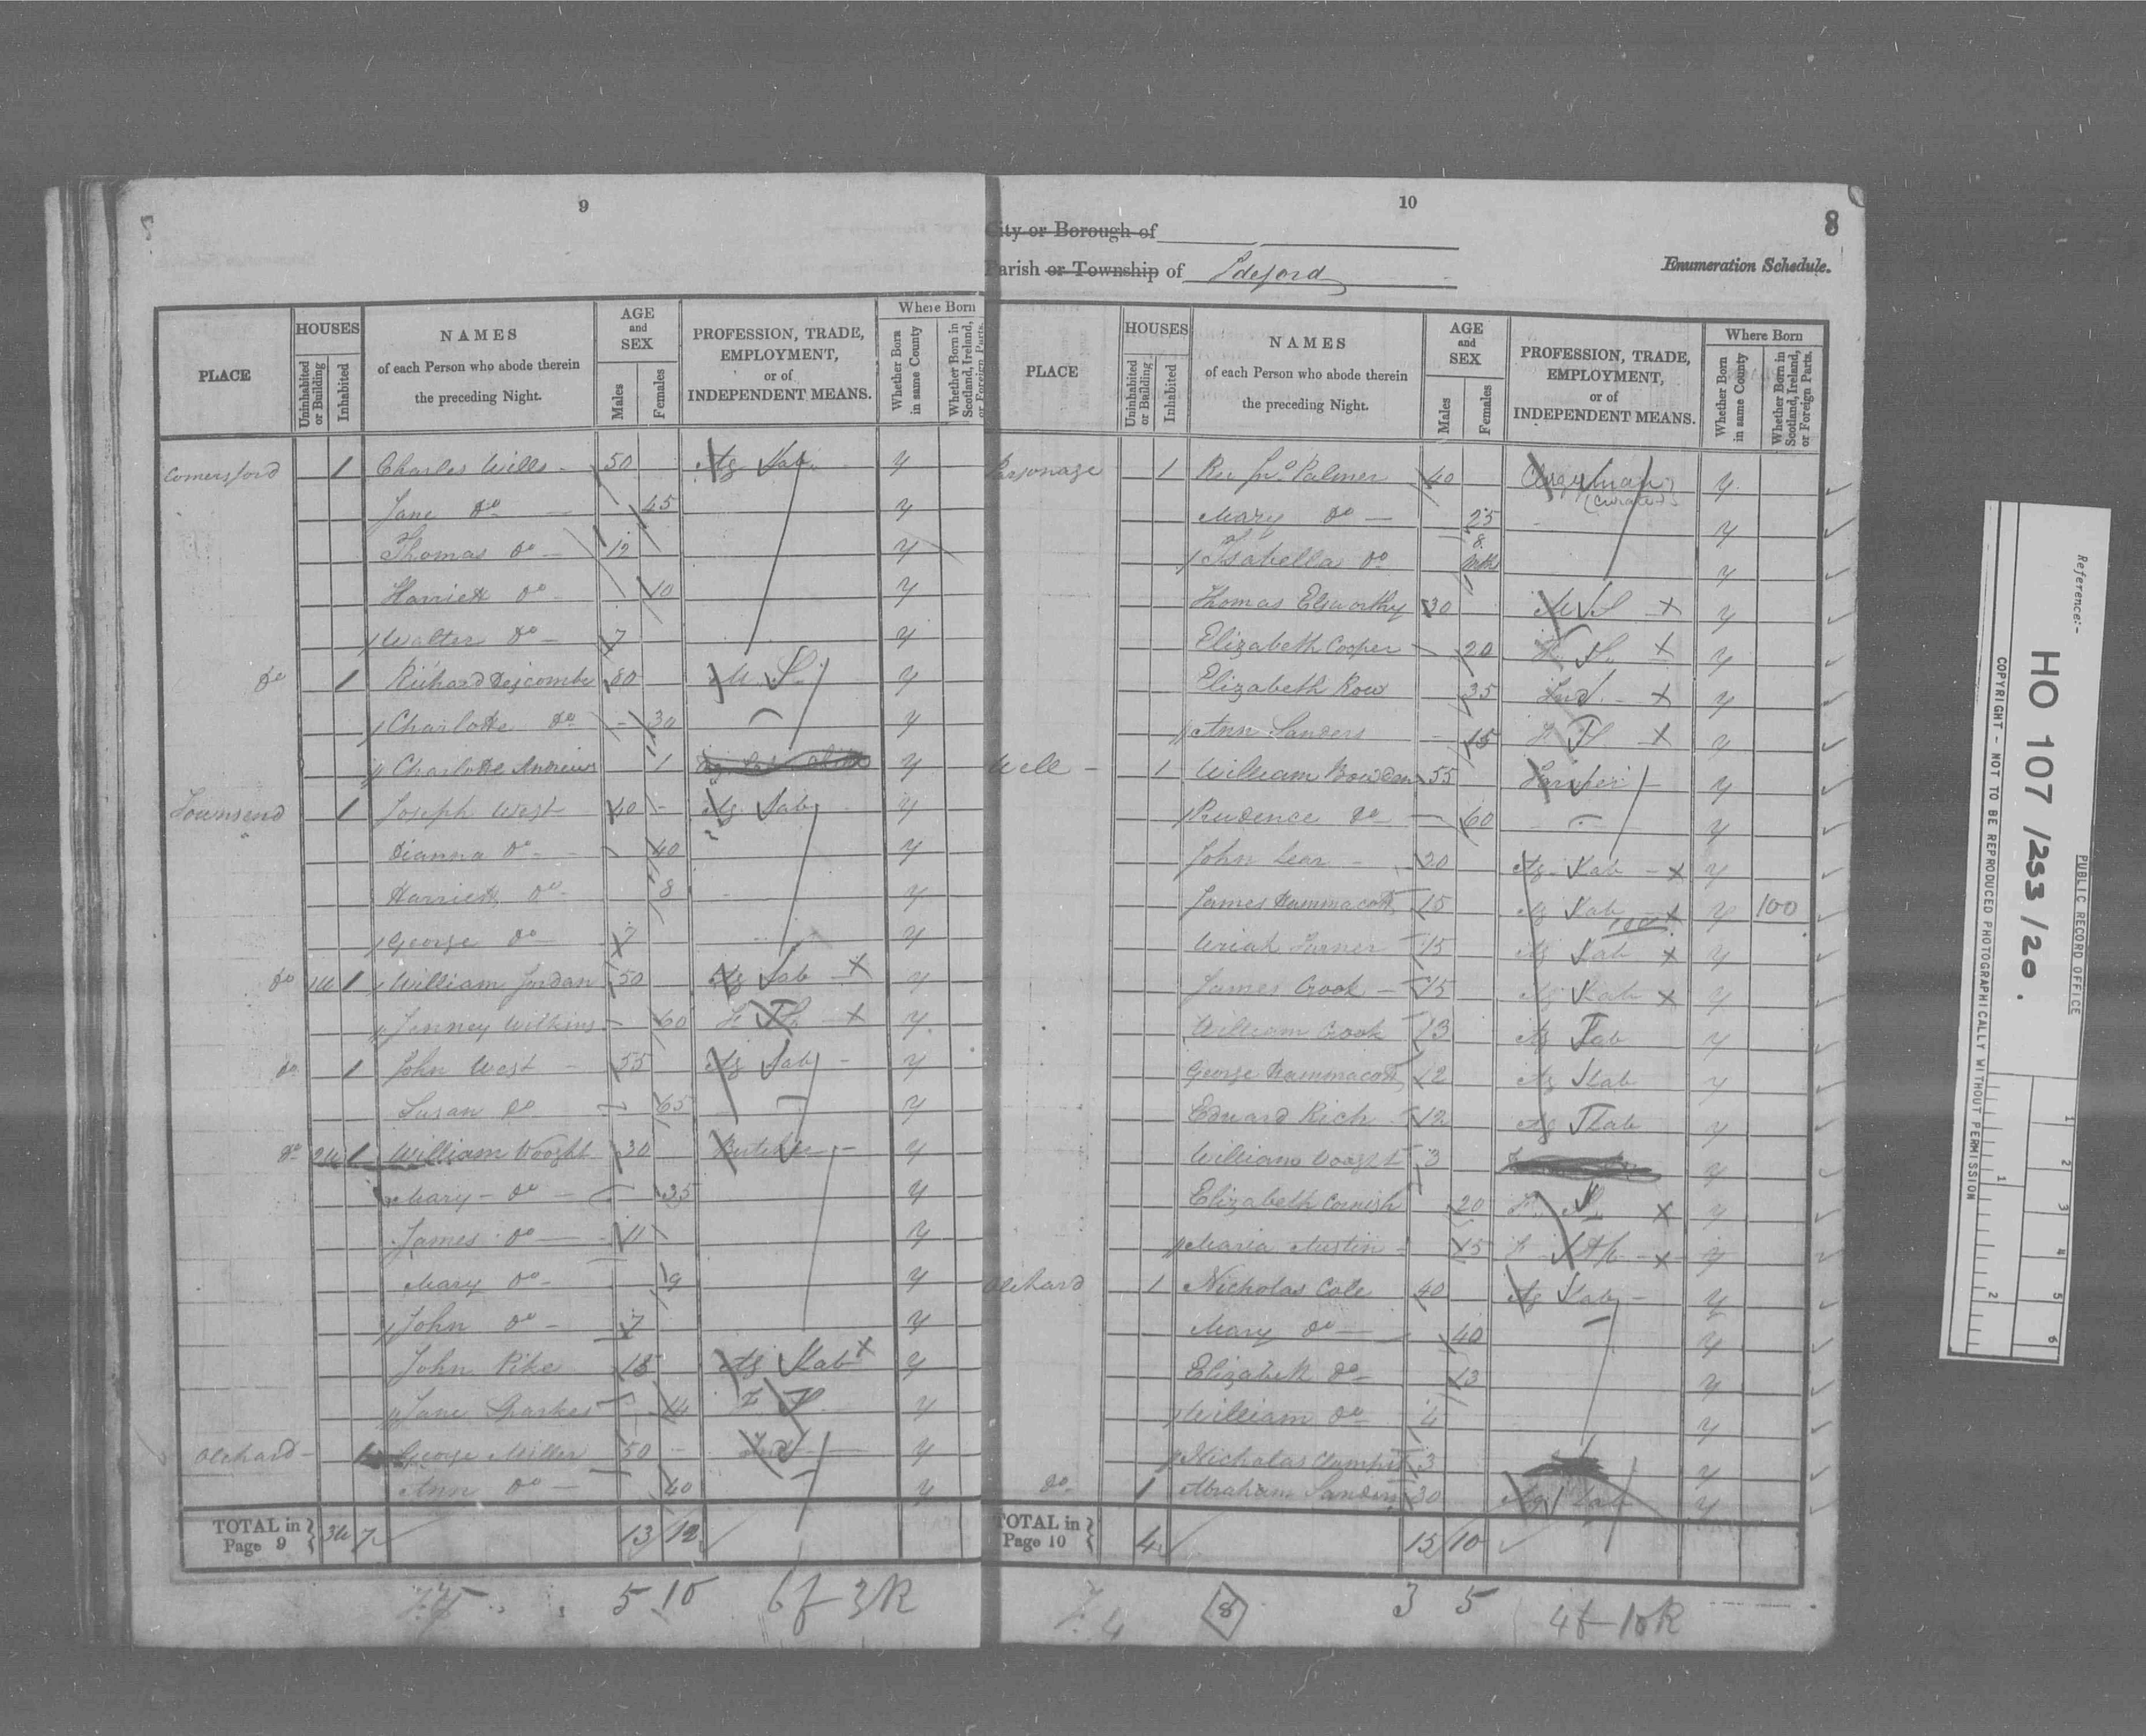 9
PLACE HOUSES Uninhabited or Building Inhabited NAMES of each Person who abode therein the preceding Night. AGE and SEX Males Females PROFESSION, TRADE, EMPLOYMENT, or of INDEPENDENT MEANS. Where Born Whether Born in same County Whether Born in Scotland, Ireland, or Foreign Parts.
Comersford 1 Charles Wills 50 Ag Lab y
Jane do 45 y
Thomas do 12 y
Harriett do 10 y
Walter do 7 y
do 1 Richard 80 M. S. y
Charlotte do 30 y
Charlotte Andrews 1 y
Townsend 1 Joseph West 40 Ag Lab y
Dianna do 40 y
Harriett do 8 y
George do 7 y
do 1U 1 William Jordan 50 Ag Lab X y
Jenney Wilkins 60 F S X y
do 1 John West 55 Ag Lab y
Susan do 65 y
do 2U 1 William Vooght 30 Butcher y
Mary do 35 y
James do 11 y
Mary do 9 y
John do 7 y
John Pike 15 Ag Lab X y
Jane Sparkes 14 F. S. y
Orchard 1 George Miller 50 Ind y
Ann do 40 y
TOTAL in Page 9 3U 7 13 12
5 10 6f-3R
10
8
City or Borough of
Parish or Township of Ideford
Enumeration Schedule.
PLACE HOUSES Uninhabited or Building Inhabited NAMES of each Person who abode therein the preceding Night. AGE and SEX Males Females PROFESSION, TRADE, EMPLOYMENT, or of INDEPENDENT MEANS. Where Born Whether Born in same County Whether Born in Scotland, Ireland, or Foreign Parts.
Parsonage 1 Rev Jno Palmer 40 Clergyman (Curate) y
Mary do 25 y
Isabella do 8 mths y
Thomas Elsworthy 30 M S X y
Elizabeth Cooper 20 F. S. X y
Elizabeth Row 35 Ind. X y
Ann Sanders 15 F S X y
Well 1 William Bowden 55 Farmer y
Prudence do 60 y
John Lear 20 Ag Lab X y
James Hammacott 15 Ag Lab X y 100
Uriah Turner 15 Ag Lab X y
James Crook 15 Ag Lab X y
William Crook 13 Ag Lab y
George Hammacott 12 Ag Lab y
Edward Rich 12 Ag Lab y
William Vooght 3 y
Elizabeth Cornish 20 F. S. X y
Maria Austin 15 F S X y
Orchard 1 Nicholas Cole 40 Ag Lab y
Mary do 40 y
Elizabeth do 13 y
William do 4 y
Nicholas Clampitt 3 y
do 1 Abraham Sanders 30 Ag Lab y
TOTAL in Page 10 4 15 10
8 3 5 4f-10R
Reference:-
HO 107 /253/20.
PUBLIC RECORD OFFICE
COPYRIGHT - NOT TO BE REPRODUCED PHOTOGRAPHICALLY WITHOUT PERMISSION
1 2 3 4 5 6
1 2